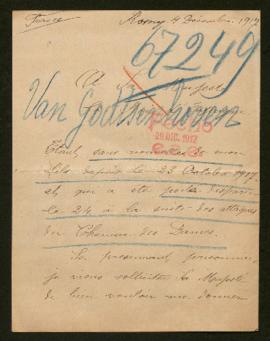 France
Rosny 4 Décembre 1917
67249
A Sa Majesté
Van Godtsenhoven
28 DEC. 1917
Étant sans nouvelles de mon
fils depuis le 23 Octobre 1917
et qui a été porté disparu
le 24 à la suite des attaques
du Chemin des Dames.
Le présumant prisonnier
je viens solliciter Sa Majesté
de bien vouloir me donner